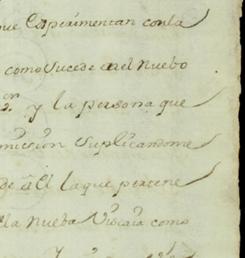 que Experimentan con la
como Sucede en el Nuebo
y la persona que
mission Suplicandome
de a El la que pertene
la Nueba Viscaia como